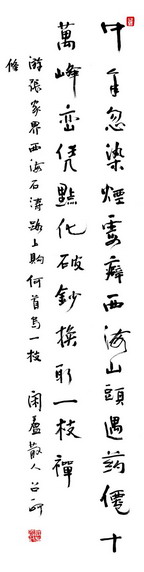 中年忽染煙霞癖西海山頭遇药僊十
萬峰峦凭點化破鈔換取一枝禪
游張家界西海石濤路上購何首烏一枝 閑廬散人